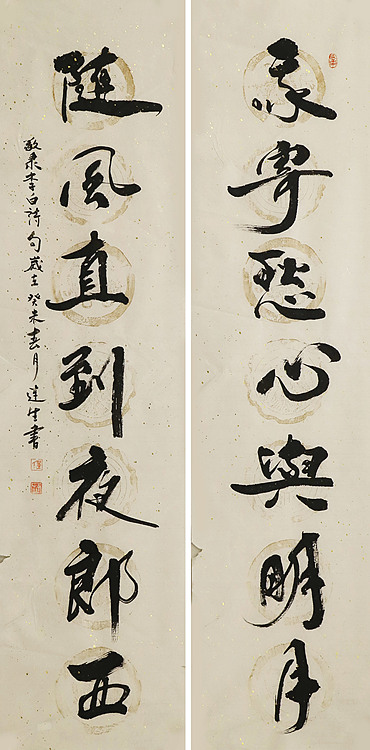 我寄愁心與明月
隨風直到夜郎西
敬录李白詩句歲在癸未春月連生書